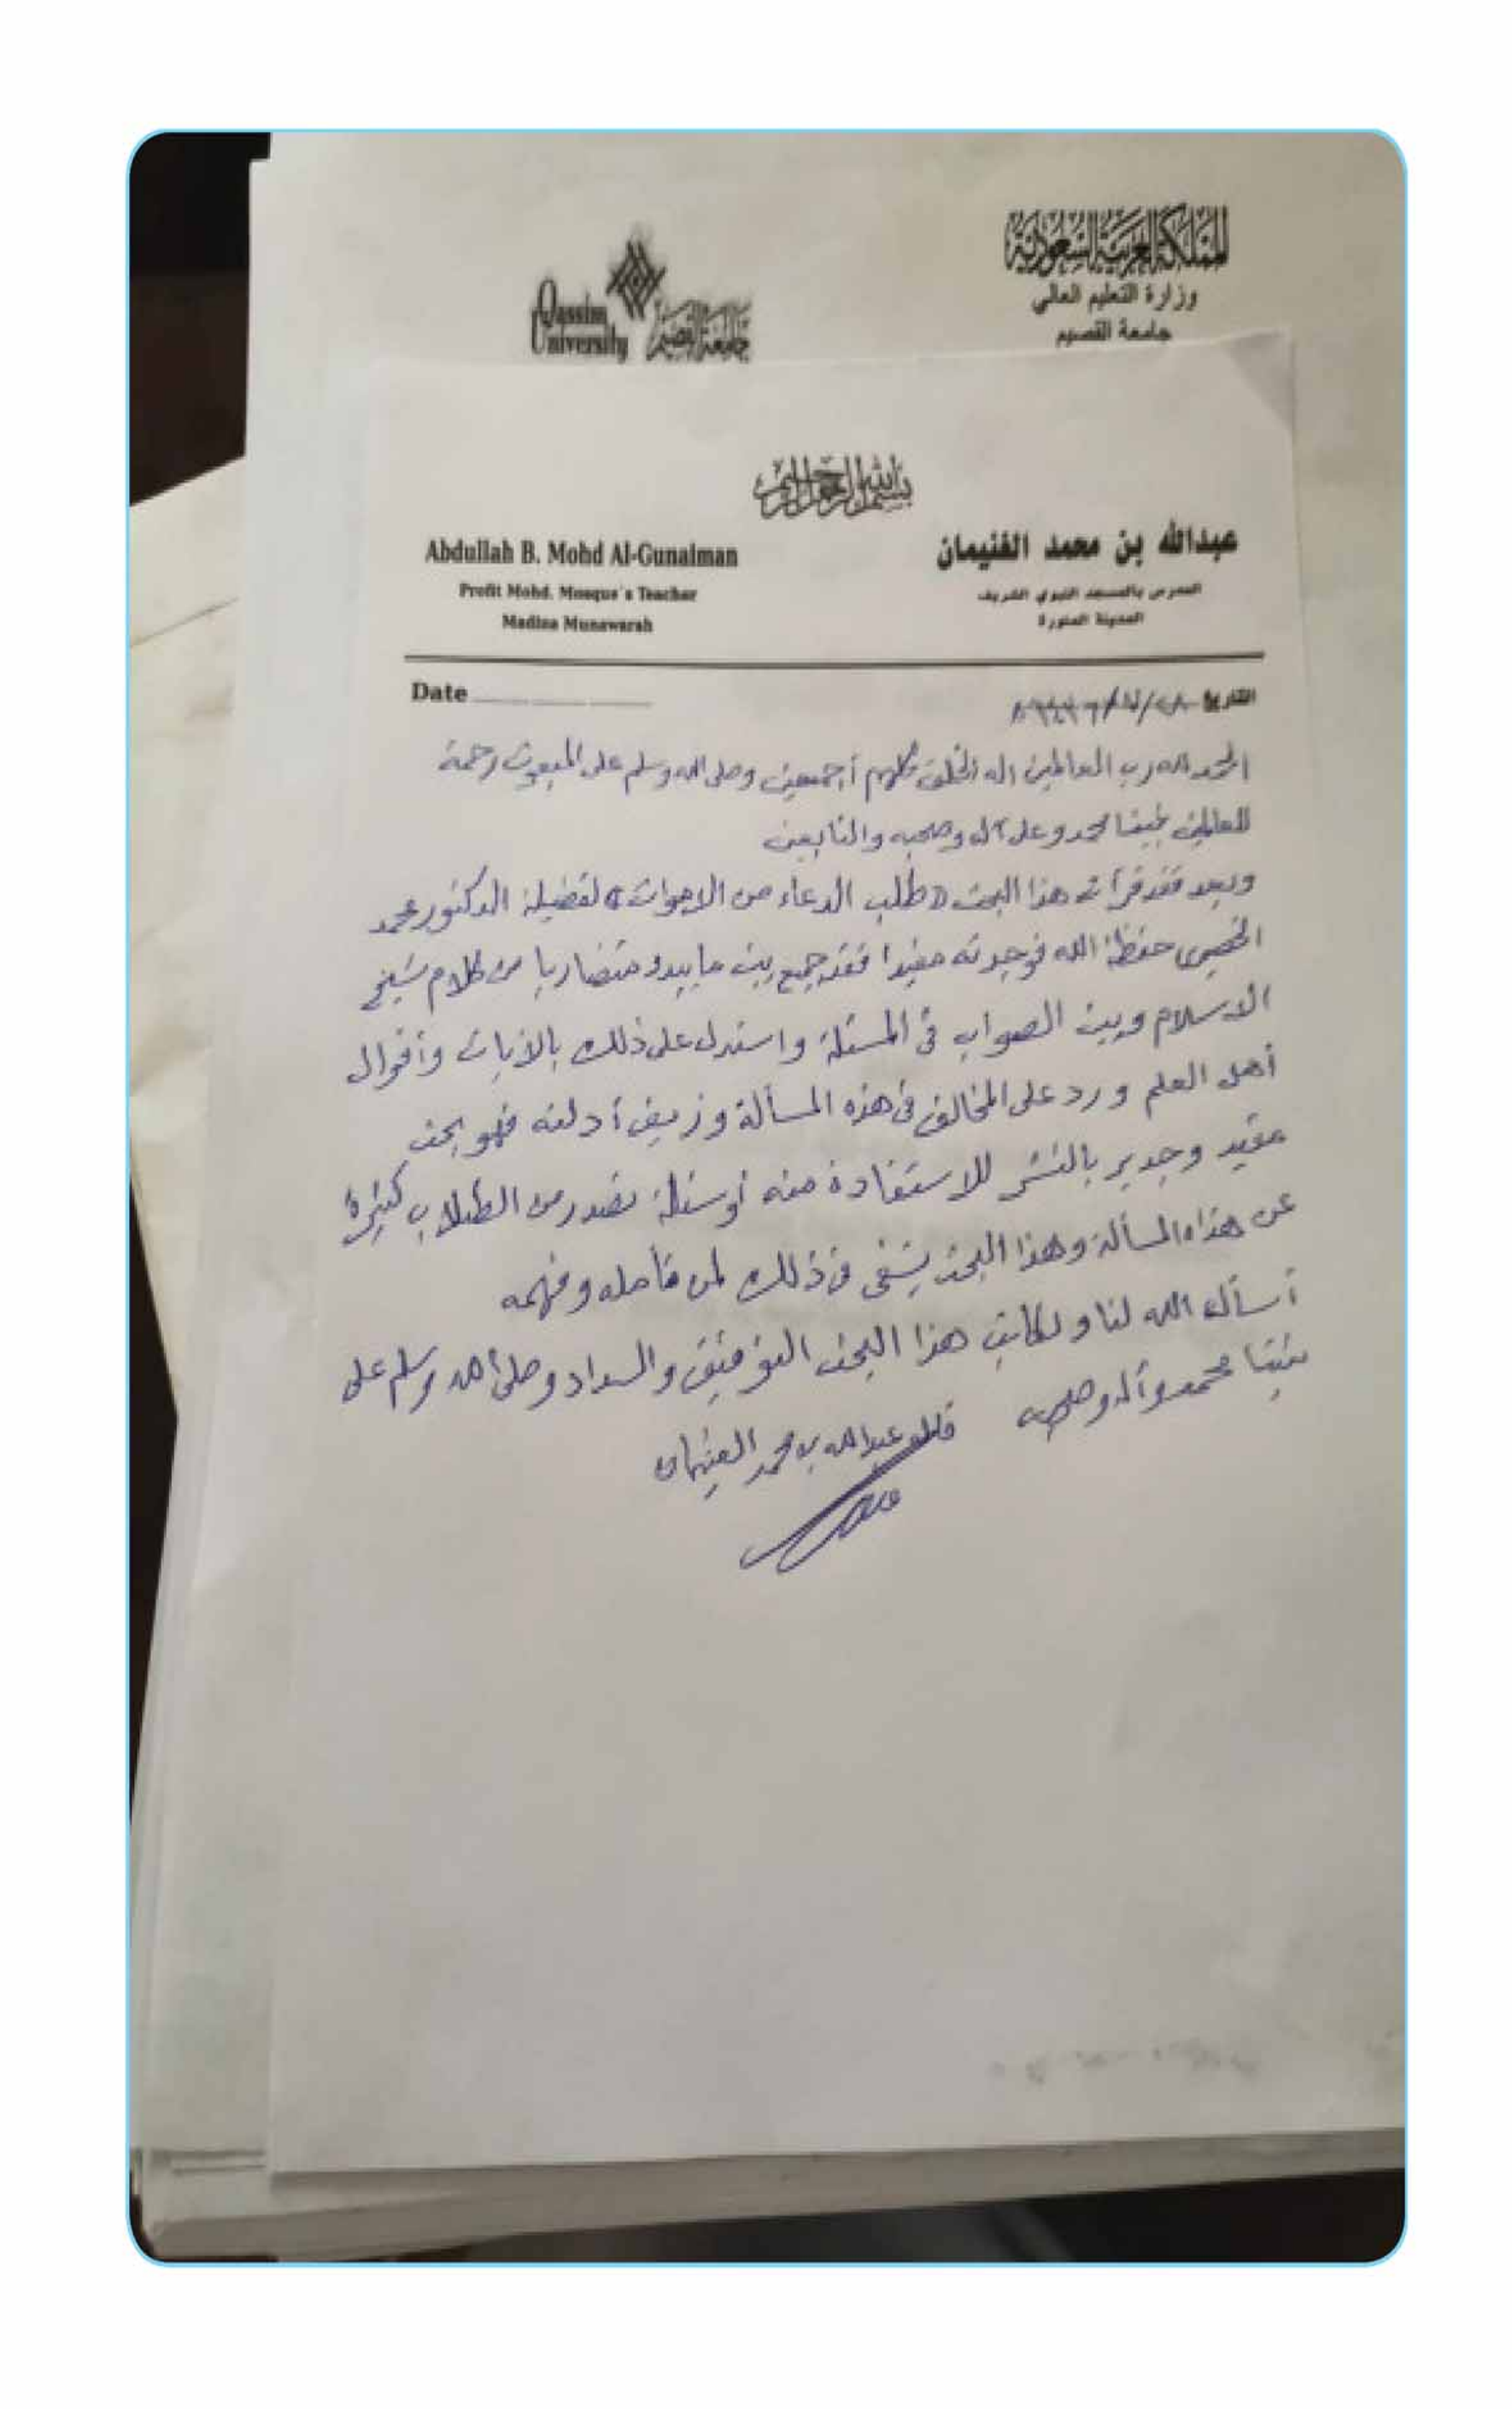 المملكة العربية السعودية
وزارة التعليم العالي
جامعة القصيم
Qassim University جامعة القصيم
بسم الله الرحمن الرحيم
عبدالله بن محمد الغنيمان
المدرس بالمسجد النبوي الشريف
المدينة المنورة
Abdullah B. Mohd Al-Gunaiman
Profit Mohd. Mosque's Teacher
Madina Munawarah
التاريخ
Date
الحمد لله رب العالمين اله الخلق كلهم أجمعين وصلى الله وسلم على المبعوث رحمة
للعالمين نبينا محمد وعلى آله وصحبه والتابعين
وبعد فقد قرأت هذا البحث «طلب الدعاء من الاموات» لفضيلة الدكتور محمد
حفظه الله فوجدته مفيدا فقد جمع بين ما يبدو متضاربا من كلام شيخ
الاسلام وبين الصواب في المسئلة واستدل على ذلك بالآيات وأقوال
أهل العلم ورد على المخالف في هذه المسألة وزيف أدلته فهو بحث
مفيد وجدير بالنشر للاستفادة منه تصدر من الطلاب كثيرة
عن هذه المسألة وهذا البحث يشفي في ذلك لمن تأمله وفهمه
أسأل الله لنا ولكاتب هذا البحث التوفيق والسداد وصلى الله وسلم على
نبينا محمد وآله وصحبه قاله عبدالله بن محمد الغنيمان